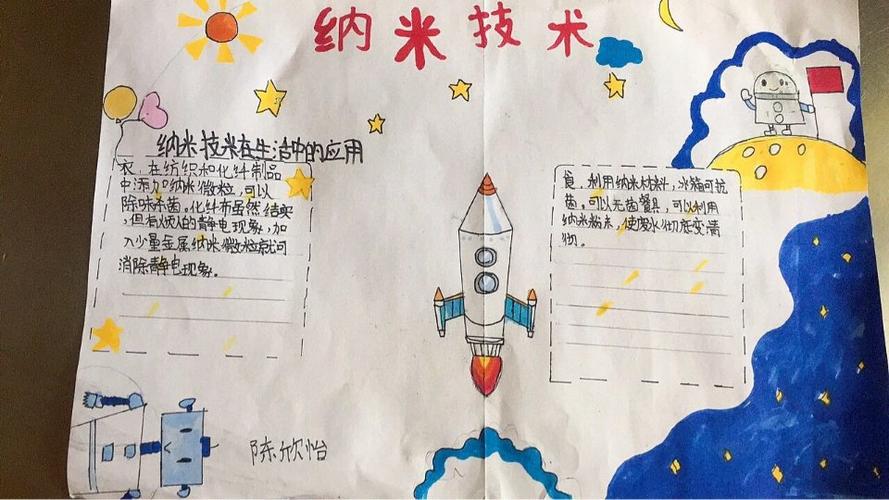 纳米技术
纳米技米在生活中的应用
衣，在纺织和化纤制品
中添加纳米微粒，可以
除味杀菌。化纤布虽然结实
，但有烦人的静电现象，加
入少量金属纳米微粒就可
消除静电现象。
食，利用纳米材料，冰箱可抗
菌。可以无菌餐具，可以利用
纳米粉末，使废水彻底变清
彻。
陈欣怡